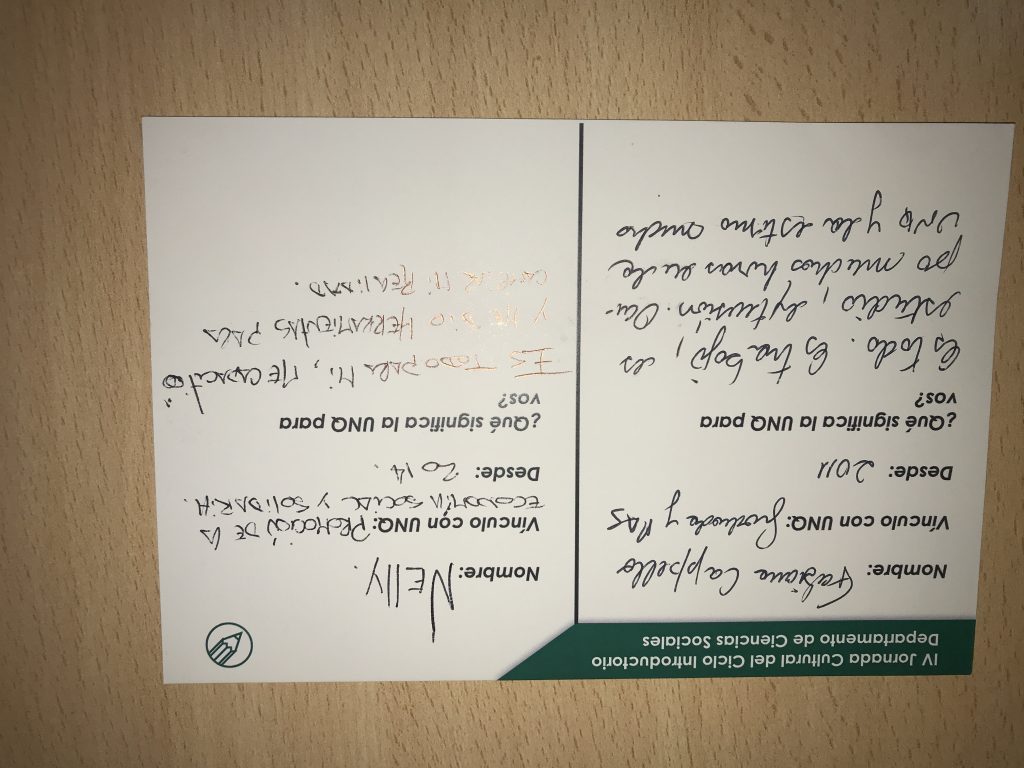 IV Jornada Cultural del Ciclo Introductorio
Departamento de Ciencias Sociales
Nombre: Fabiana Cappello
Vínculo con UNQ: Graduada y
Desde: 2011
¿Qué significa la UNQ para
vos?
Es todo. Es trabajo, es
estudio, extensión. Ocu-
po muchos horas de la
UNQ y la estimo mucho
Nombre: NElly.
Vínculo con UNQ: PROMOCIÓN DE LA
ECONOMÍA SOCIAL Y SOLIDARIA.
Desde: 2014.
¿Qué significa la UNQ para
vos?
ES TODO PARA MI, ME CAPACITÓ
Y ME DIO HERRAMIENTAS PARA
MI REALIDAD.